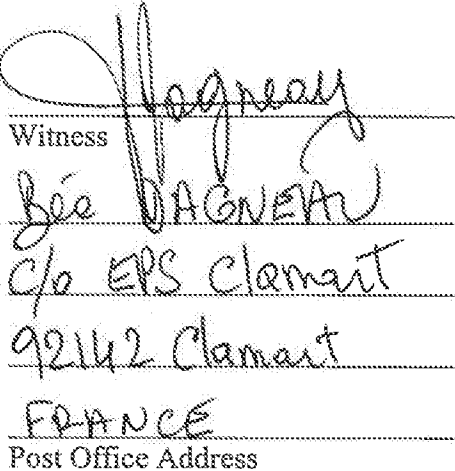 Vagneau
Witness
Bée VAGNEAU
c/o EPS Clamart
92142 Clamart
FRANCE
Post Office Address